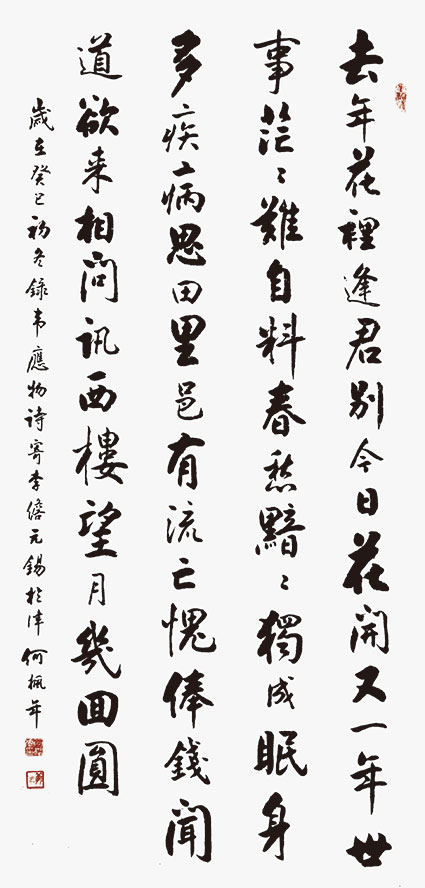 去年花裡逢君别今日花開又一年世
事茫〻難自料春愁黯〻獨成眠身
多疾病思田里邑有流亡愧俸錢聞
道欲来相問訊西樓望月幾回圓
歲在癸巳初冬錄韦應物诗寄李儋元錫於津何佩年